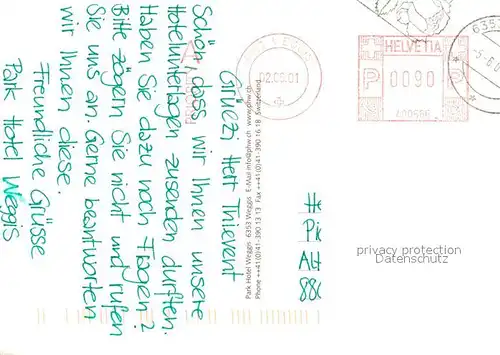 Grüezi Herr Thievent
Schön, dass wir Ihnen unsere
Hotelunterlagen zusenden durften.
Haben Sie dazu noch Fragen?
Bitte zögern Sie nicht und rufen
Sie uns an. Gerne beantworten
wir Ihnen diese.
Freundliche Grüsse
Park Hotel Weggis
Park Hotel Weggis 6353 Weggis E-Mail info@phw.ch www.phw.ch
Phone ++41(0)41-390 13 13 Fax ++41(0)41-390 16 18 Switzerland
02.08.01
HELVETIA
P 0090 P
6353
privacy protection
Datenschutz